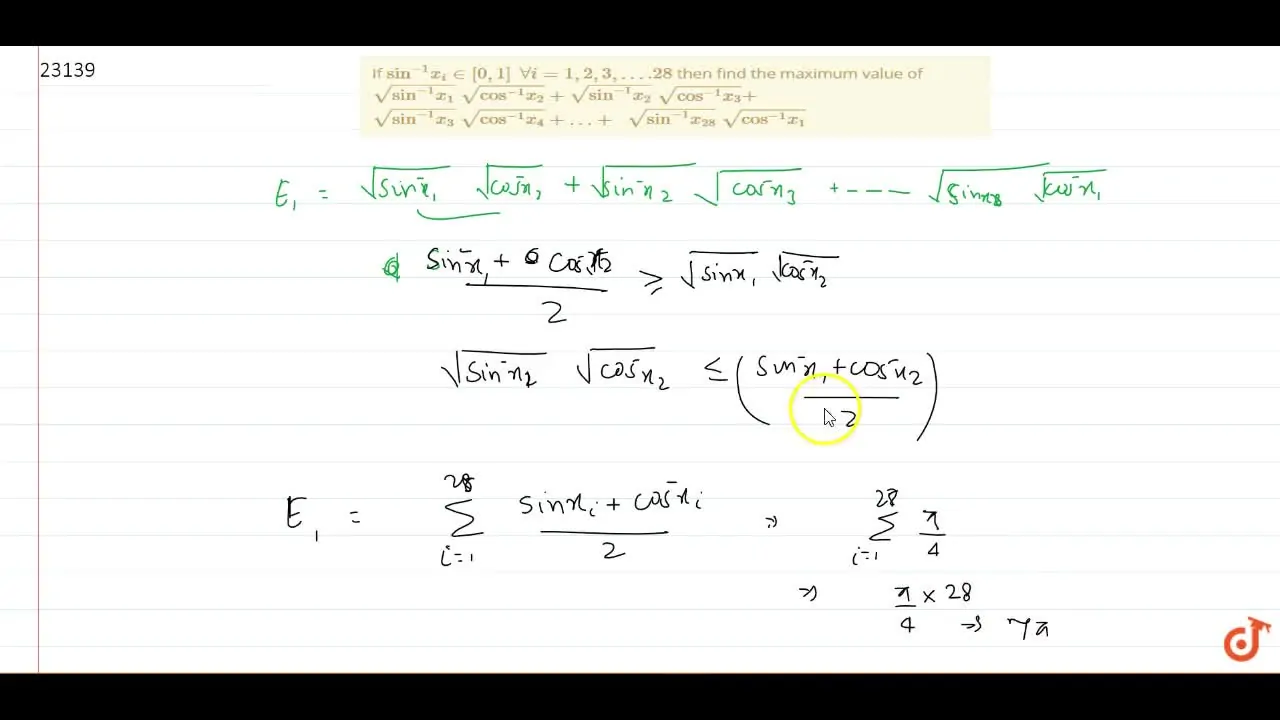 23139
If sin⁻¹xᵢ ∈ [0, 1] ∀i = 1, 2, 3, ....28 then find the maximum value of
√sin⁻¹x₁ √cos⁻¹x₂ + √sin⁻¹x₂ √cos⁻¹x₃+
√sin⁻¹x₃ √cos⁻¹x₄ + ... + √sin⁻¹x₂₈ √cos⁻¹x₁
E₁ = √sin⁻x₁ √cos⁻x₂ + √sin⁻x₂ √cos⁻x₃ + - - - √sinx₂₈ √cos⁻x₁
(sin⁻x₁ + cos⁻x₂)/2 ≥ √sinx₁ √cos⁻x₂
√sin⁻x₂ √cos⁻x₂ ≤ ((sin⁻x₁ + cos⁻x₂)/2)
E₁ = Σᵢ₌₁²⁸ (sinxᵢ + cos⁻xᵢ)/2 ⇒ Σᵢ₌₁²⁸ π/4
⇒ π/4 × 28
⇒ 7π